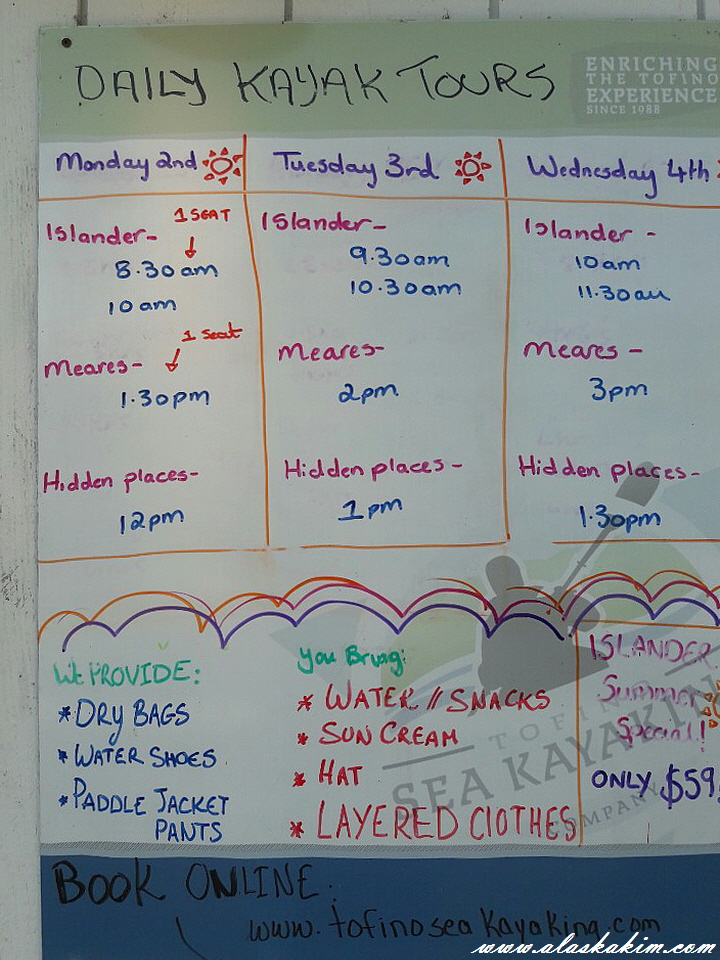 DAILY KAYAK TOURS
ENRICHING
THE TOFINO
EXPERIENCE
SINCE 1988
Monday 2nd
Islander-
1 SEAT
8.30am
10am
1 Seat
Meares-
1.30pm
Hidden places-
12pm
Tuesday 3rd
Islander-
9.30am
10.30am
Meares-
2pm
Hidden places-
1pm
Wednesday 4th
Islander -
10am
11.30am
Meares -
3pm
Hidden places-
1.30pm
We PROVIDE:
*DRY BAGS
*WATER SHOES
*PADDLE JACKET
PANTS
You Bring:
* WATER // SNACKS
* SUN CREAM
* HAT
* LAYERED ClOTHES
ISLANDER
Summer
Special!
ONLY $59
TOFINO
SEA KAYAKING
COMPANY
BOOK ONLINE.
www.tofinoseakayaking.com
www.alaskakim.com